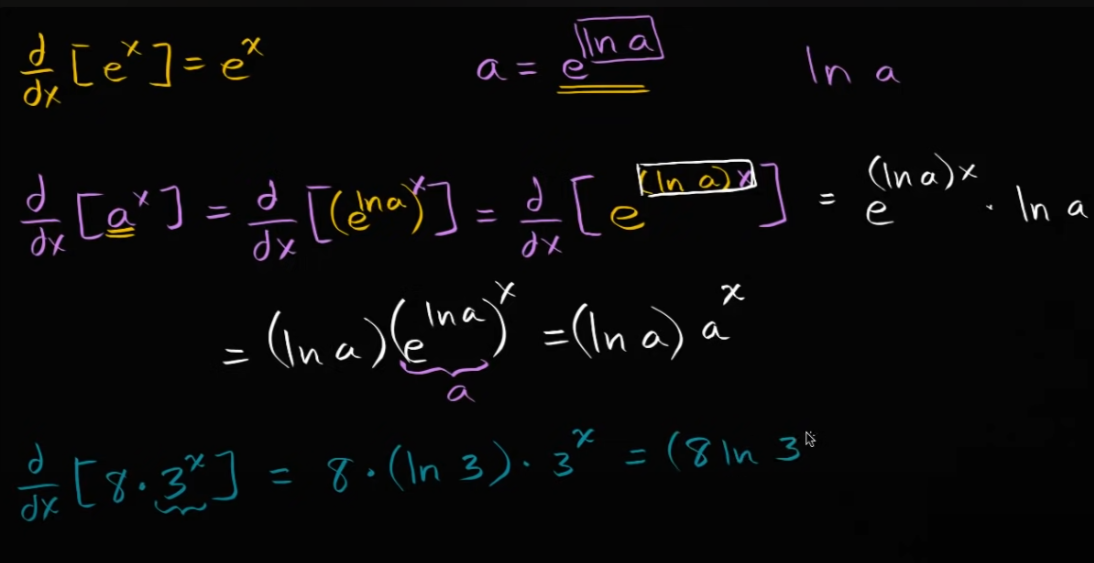 d/dx [e^x] = e^x    a = e^(ln a)    ln a
d/dx [a^x] = d/dx [(e^(ln a))^x] = d/dx [e^((ln a)x)] = e^((ln a)x) · ln a
= (ln a)(e^(ln a))^x = (ln a) a^x
a
d/dx [8 · 3^x] = 8 · (ln 3) · 3^x = (8 ln 3